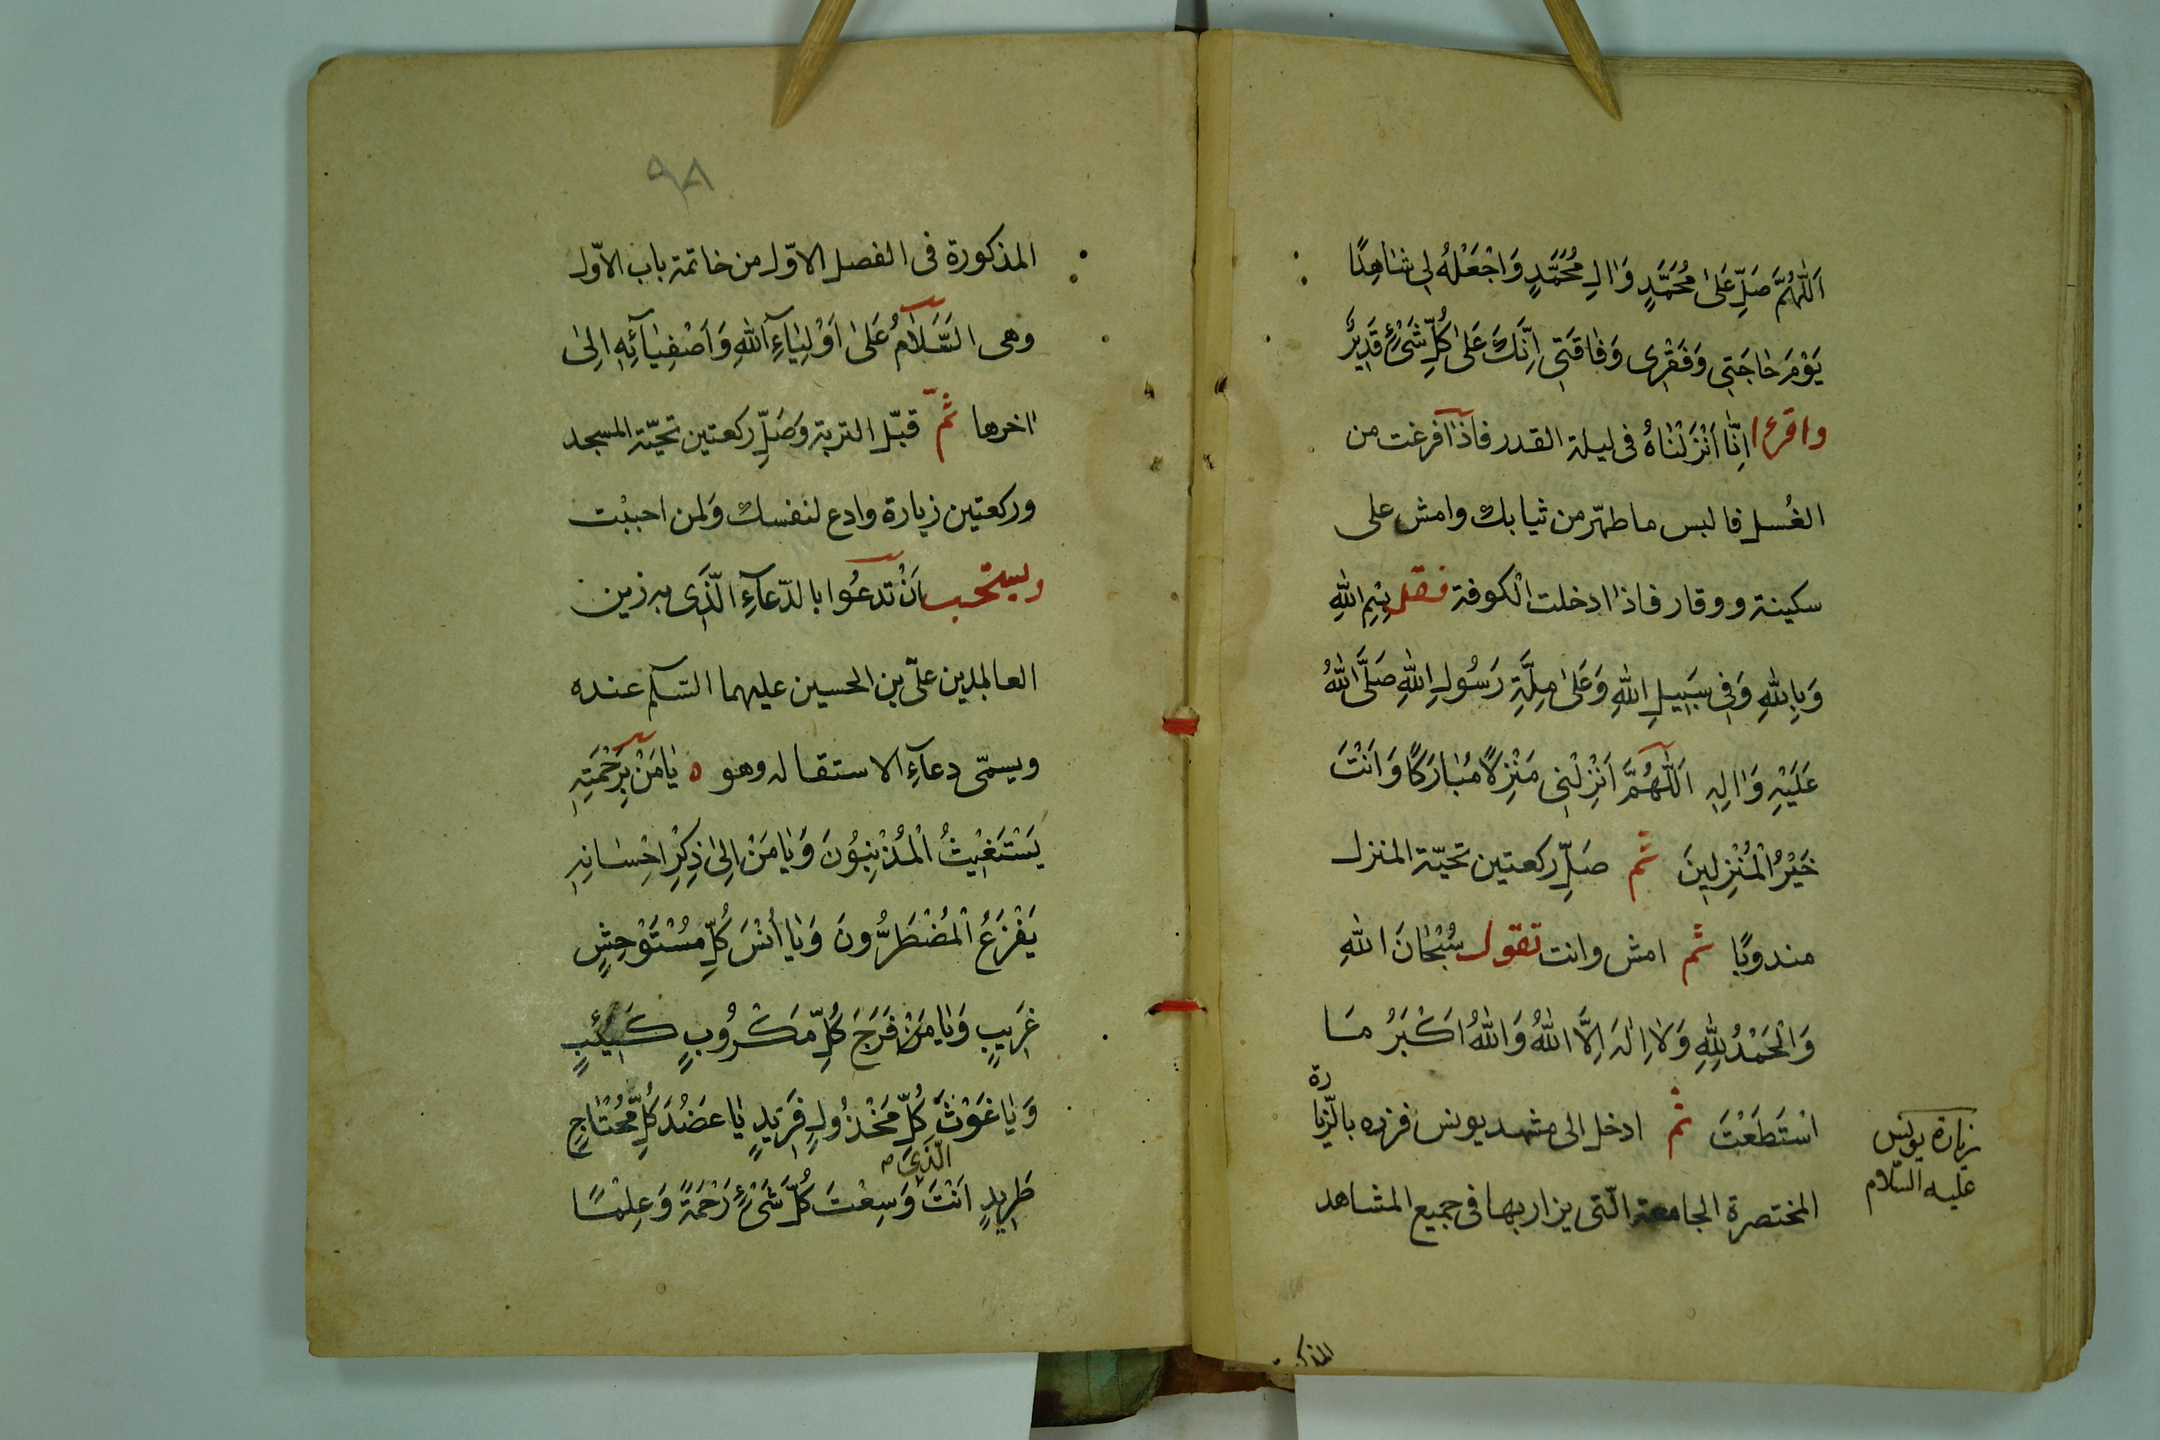 اَللّٰهُمَّ صَلِّ عَلىٰ مُحَمَّدٍ وَاٰلِ مُحَمَّدٍ وَاجْعَلْهُ لِي شٰاهِدًا
يَوْمَ حٰاجَتِي وَفَقْرِى وَفٰاقَتِي اِنَّكَ عَلىٰ كُلِّ شَىْءٍ قَدِيْرٌ
واقرء اِنّٰا اَنْزَلْنٰاهُ فى ليلة القدر فاذا فرغت من
الغُسل فالبس ماطهّر من ثيابك وامش على
سكينة ووقار فاذا ادخلت الكوفة فقل بِسْمِ اللّٰهِ
وَبِاللّٰهِ وَفِي سَبِيلِ اللّٰهِ وَعَلىٰ مِلَّةِ رَسُولِ اللّٰهِ صَلَّى اللّٰهُ
عَلَيْهِ وَاٰلِهِ اَللّٰهُمَّ اَنْزِلْنِي مَنْزِلًا مُبٰارَكًا وَاَنْتَ
خَيْرُ الْمُنْزِلِينَ ثم صَلِّ ركعتين تحيّة المنزل
مندوبًا ثم امش وانت تقول سُبْحٰانَ اللّٰهِ
وَالْحَمْدُ لِلّٰهِ وَلاٰ اِلٰهَ اِلَّا اللّٰهُ وَاللّٰهُ اَكْبَرُ مَا
اسْتَطَعْتَ ثم ادخل الى مشهد يونس فزره بالزّيارة
المختصرة الجامعة الّتى يزار بها فى جميع المشاهد
زيارة يونس
عليه السّلام
المذكورة
٩٨
المذكورة فى الفصل الاوّل من خاتمة باب الاوّل
وهى السَّلاٰمُ عَلىٰ اَوْلِيٰاۤءِ اللّٰهِ وَاَصْفِيٰاۤئِهِ اِلىٰ
اٰخرها ثمّ قبّل التربة وَصَلِّ ركعتين تحيّة المسجد
وركعتين زيارة وادع لنفسك وَلمن احببْت
ويستحب اَنْ تدعُوا بالدّعاۤءِ الَّذى به زين
العابدين علىّ بن الحسين عليهما السّلم عنده
ويسمّى دعاۤءِ الاستقاله وهو ه يٰا مَنْ بِرَحْمَتِهِ
يَسْتَغِيْثُ الْمُذْنِبُوْنَ وَيٰا مَنْ اِلىٰ ذِكْرِ اِحْسٰانِهِ
يَفْزَعُ الْمُضْطَرُّونَ وَيٰا اُنْسَ كُلِّ مُسْتَوْحِشٍ
غَرِيبٍ وَيٰا مَنْ فَرَجَ كُلِّ مَكْرُوُبٍ كَئِيْبٍ
وَيٰا غَوْثَ كُلِّ مَخْذُولٍ فَرِيدٍ يٰا عَضُدَ كُلِّ مُحْتٰاجٍ
طَرِيدٍ اَنْتَ الَّذِى وَسِعْتَ كُلَّ شَىْءٍ رَحْمَةً وَعِلْمًا